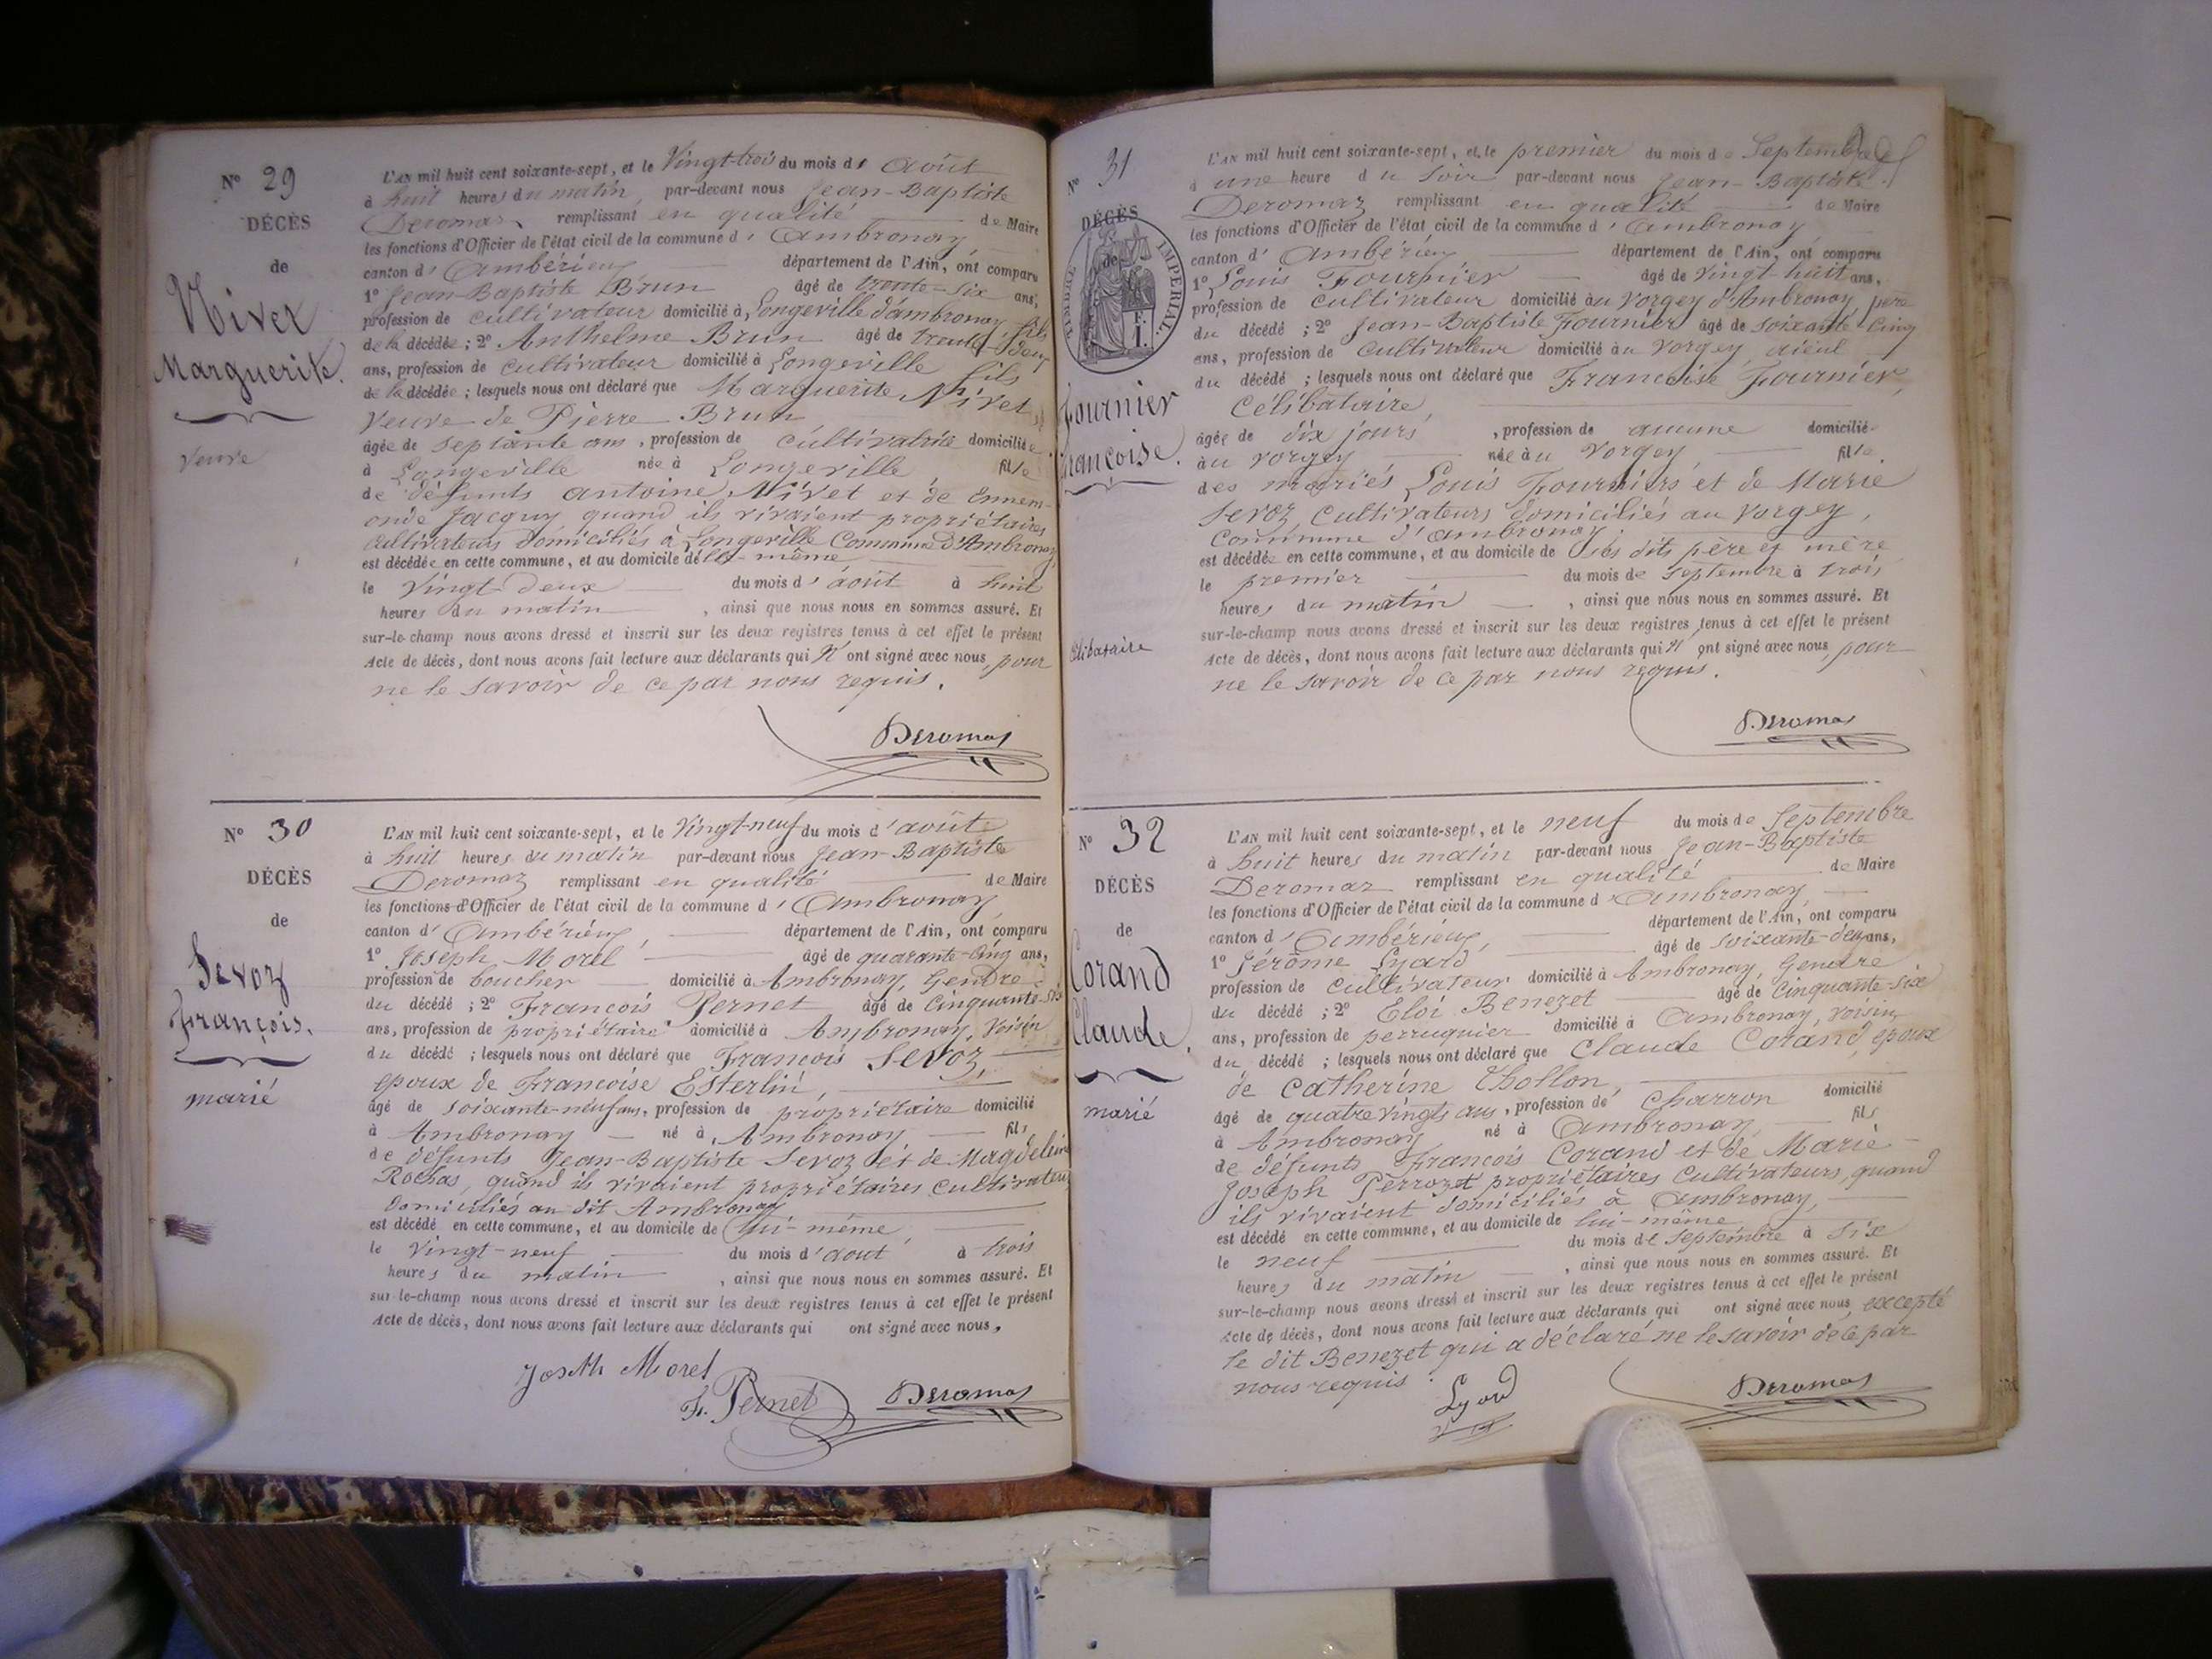 N° 29
DÉCÈS
de
Nivet
Marguerite.
veuve
L'AN mil huit cent soixante-sept, et le Vingt-trois du mois d' août
à huit heures du matin, par-devant nous Jean-Baptiste
Deromas remplissant en qualité de Maire
les fonctions d'Officier de l'état civil de la commune d' Ambronay,
canton d' Ambérieux département de l'Ain, ont comparu
1° Jean-Baptiste Brun âgé de trente-six ans,
profession de cultivateur domicilié à Longeville d'ambronay, fils
de la décédée ; 2° Anthelme Brun âgé de trente-deux
ans, profession de cultivateur domicilié à Longeville fils
de la décédée ; lesquels nous ont déclaré que Marguerite Nivet
veuve de Pierre Brun
âgée de septante ans, profession de cultivatrice domiciliée
à Longeville née à Longeville fille
de défunts antoine Nivet et de Ennem-
onde Jacquy quand ils vivaient propriétaires
cultivateurs domiciliés à Longeville Commune d'Ambronay,
est décédée en cette commune, et au domicile d'elle-même
le vingt-deux du mois d' août à huit
heures du matin, ainsi que nous nous en sommes assuré. Et
sur-le-champ nous avons dressé et inscrit sur les deux registres tenus à cet effet le présent
Acte de décès, dont nous avons fait lecture aux déclarants qui n' ont signé avec nous, pour
ne le savoir de ce par nous requis.
Deromas
N° 30
DÉCÈS
de
Sevoz
François.
marié
L'AN mil huit cent soixante-sept, et le Vingt-neuf du mois d' août
à huit heures du matin par-devant nous Jean-Baptiste
Deromaz remplissant en qualité de Maire
les fonctions d'Officier de l'état civil de la commune d' Ambronay
canton d' Ambérieux, département de l'Ain, ont comparu
1° Joseph Morel âgé de quarante-cinq ans,
profession de boucher domicilié à Ambronay, Gendre
du décédé ; 2° François Pernet âgé de cinquante-six
ans, profession de propriétaire domicilié à Ambronay, voisin
du décédé ; lesquels nous ont déclaré que François Sevoz,
époux de Françoise Esterlin,
âgé de soixante-neuf ans, profession de propriétaire domicilié
à Ambronay né à Ambronay fils
de défunts Jean-Baptiste Sevoz et de Magdeleine
Rochas, quand ils vivaient propriétaires cultivateurs
domiciliés au dit Ambronay
est décédé en cette commune, et au domicile de lui-même,
le vingt-neuf du mois d' aout à trois
heures du matin, ainsi que nous nous en sommes assuré. Et
sur-le-champ nous avons dressé et inscrit sur les deux registres tenus à cet effet le présent
Acte de décès, dont nous avons fait lecture aux déclarants qui ont signé avec nous,
Joseth Morel
F. Pernet Deromas
N° 31
DÉCÈS
de
TIMBRE IMPERIAL.
F.
1.
Fournier
Françoise.
Célibataire
L'AN mil huit cent soixante-sept, et le premier du mois de Septembre
à une heure du soir par-devant nous Jean-Baptiste
Deromaz remplissant en qualité de Maire
les fonctions d'Officier de l'état civil de la commune d' Ambronay,
canton d' Ambérieu département de l'Ain, ont comparu
1° Louis Fournier âgé de vingt-huit ans,
profession de cultivateur domicilié au vorgey d'Ambronay, père
du décédé ; 2° Jean-Baptiste Fournier âgé de soixante-cinq
ans, profession de cultivateur domicilié au vorgey aïeul
du décédé ; lesquels nous ont déclaré que Françoise Fournier,
célibataire,
âgée de dix jours, profession de aucune domicilié
au vorgey née au Vorgey, fille
des mariés Louis Fourniers et de Marie
Sevoz, cultivateurs domiciliés au vorgey,
commune d'ambronay
est décédée en cette commune, et au domicile de ses dits père et mère
le premier du mois de septembre à trois
heures du matin, ainsi que nous nous en sommes assuré. Et
sur-le-champ nous avons dressé et inscrit sur les deux registres tenus à cet effet le présent
Acte de décès, dont nous avons fait lecture aux déclarants qui n' ont signé avec nous, pour
ne le savoir de ce par nous requis.
Deromas
N° 32
DÉCÈS
de
Corand
Claude.
marié
L'AN mil huit cent soixante-sept, et le neuf du mois de Septembre
à huit heures du matin par-devant nous Jean-Baptiste
Deromaz remplissant en qualité de Maire
les fonctions d'Officier de l'état civil de la commune d' Ambronay,
canton d' Ambérieux, département de l'Ain, ont comparu
1° Jérôme Lyard âgé de soixante-deux ans,
profession de cultivateur domicilié à Ambronay, Gendre
du décédé ; 2° Eloi Benezet âgé de cinquante-six
ans, profession de perruquier domicilié à Ambronay, voisin
du décédé ; lesquels nous ont déclaré que Claude Corand, époux
de Catherine Chollon,
âgé de quatre vingts ans, profession de Charron domicilié
à Ambronay, né à Ambronay, fils
de défunts François Corand et de Marie
Joseph Perrozet propriétaires cultivateurs, quand
ils vivaient domiciliés à Ambronay,
est décédé en cette commune, et au domicile de lui-même
le neuf du mois de septembre à six
heures du matin, ainsi que nous nous en sommes assuré. Et
sur-le-champ nous avons dressé et inscrit sur les deux registres tenus à cet effet le présent
Acte de décès, dont nous avons fait lecture aux déclarants qui ont signé avec nous, excepté
le dit Benezet qui a déclaré ne le savoir de ce par
nous requis.
Lyard Deromas